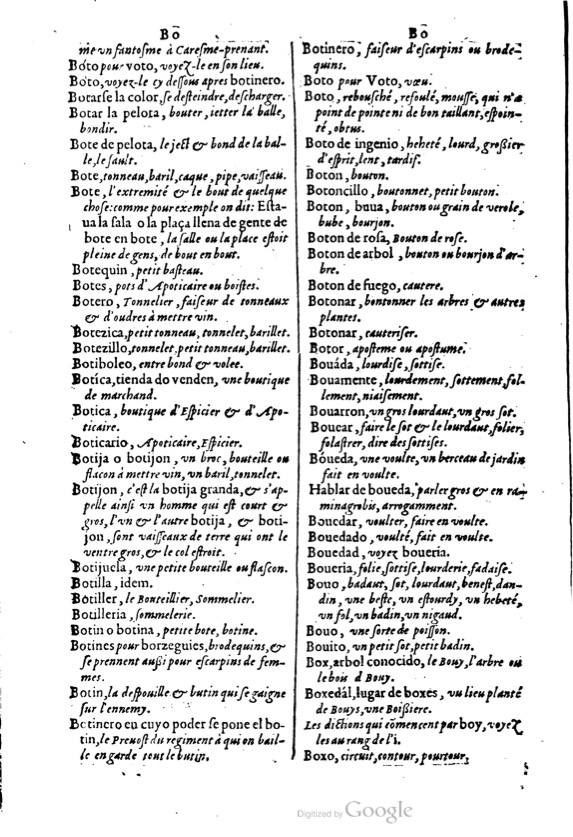 Bõ
me vn fantosme à Caresme-prenant.
Boto pour voto, voyez-le en son lieu.
Boto, voyez-le cy dessous apres botinero.
Botarse la color, se desteindre, descharger.
Botar la pelota, bouter, ietter la balle,
bondir.
Bote de pelota, le ject & bond de la bal-
le, le sault.
Bote, tonneau, baril, caque, pipe, vaisseau.
Bote, l'extremité & le bout de quelque
chose: comme pour exemple on dit: Esta-
ua la sala o la plaça llena de gente de
bote en bote, la salle ou la place estoit
pleine de gens, de bout en bout.
Botequin, petit basteau.
Botes, pots d'Apoticaire ou boistes.
Botero, Tonnelier, faiseur de tonneaux
& d'oudres à mettre vin.
Botezica, petit tonneau, tonnelet, barillet.
Botezillo, tonnelet, petit tonneau, barillet.
Botiboleo, entre bond & volee.
Botíca, tienda do venden, vne boutique
de marchand.
Botica, boutique d'Espicier & d'Apo-
ticaire.
Boticario, Apoticaire, Espicier.
Botija o botijon, vn broc, bouteille ou
flacon à mettre vin, vn baril, tonnelet.
Botijon, c'est la botija granda, & s'ap-
pelle ainsi vn homme qui est court &
gros, l'vn & l'autre botija, & boti-
jon, sont vaisseaux de terre qui ont le
ventre gros, & le col estroit.
Botijuela, vne petite bouteille ou flascon.
Botilla, idem.
Botiller, le Bouteillier, Sommelier.
Botilleria, sommelerie.
Botin o botina, petite bote, botine.
Botines pour borzeguies, brodequins, &
se prennent aussi pour escarpins de fem-
mes.
Botin, la despouille & butin qui se gaigne
sur l'ennemy.
Botinero en cuyo poder se pone el bo-
tin, le Preuost du regiment à qui on bail-
le en garde tout le butin.
Bõ
Botinero, faiseur d'escarpins ou brode-
quins.
Boto pour Voto, vœu.
Boto, rebousché, refoulé, mousse, qui n'a
point de pointe ni de bon taillant, espoin-
té, obtus.
Boto de ingenio, heheté, lourd, grossier
d'esprit, lent, tardif.
Boton, bouton.
Botoncillo, boutonnet, petit bouton.
Boton, buua, bouton ou grain de verole,
bube, bourjon.
Boton de rosa, Bouton de rose.
Boton de arbol, bouton ou bourjon d'ar-
bre.
Boton de fuego, cautere.
Botonar, bontonner les arbres & autres
plantes.
Botonar, cauteriser.
Botor, aposteme ou apostume.
Bouáda, lourdise, sottise.
Bouamente, lourdement, sottement, fol-
lement, niaisement.
Bouarron, vn gros lourdaut, vn gros sot.
Boucar, faire le sot & le lourdaut, folier,
folastrer, dire des sottises.
Bóueda, vne voulte, vn berceau de jardin
fait en voulte.
Hablar de boueda, parler gros & en ra-
minagrobis, arrogamment.
Bouedar, voulter, faire en voulte.
Bouedado, voulté, fait en voulte.
Bouedad, voyez boueria.
Boueria, folie, sottise, lourderie, fadaise.
Bouo, badaut, sot, lourdaut, benest, dan-
din, vne beste, vn estourdy, vn hebeté,
vn fol, vn badin, vn nigaud.
Bouo, vne sorte de poisson.
Bouito, vn petit sot, petit badin.
Box, arbol conocido, le Bouy, l'arbre ou
le bois d Bouy.
Boxedál, lugar de boxes, vu lieu planté
de Bouys, vne Boissiere.
Les dictions qui cõmencent par boy, voyez
les au rang de l'i.
Boxo, circuit, contour, pourtour,
Digitized by Google